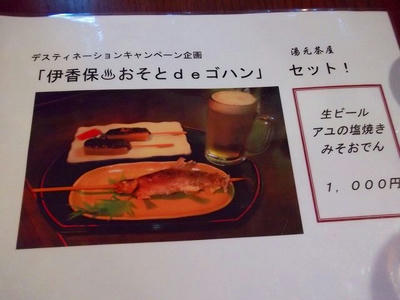 デスティネーションキャンペーン企画
湯元茶屋
「伊香保♨おそとdeゴハン」 セット!
生ビール
アユの塩焼き
みそおでん
1,000円